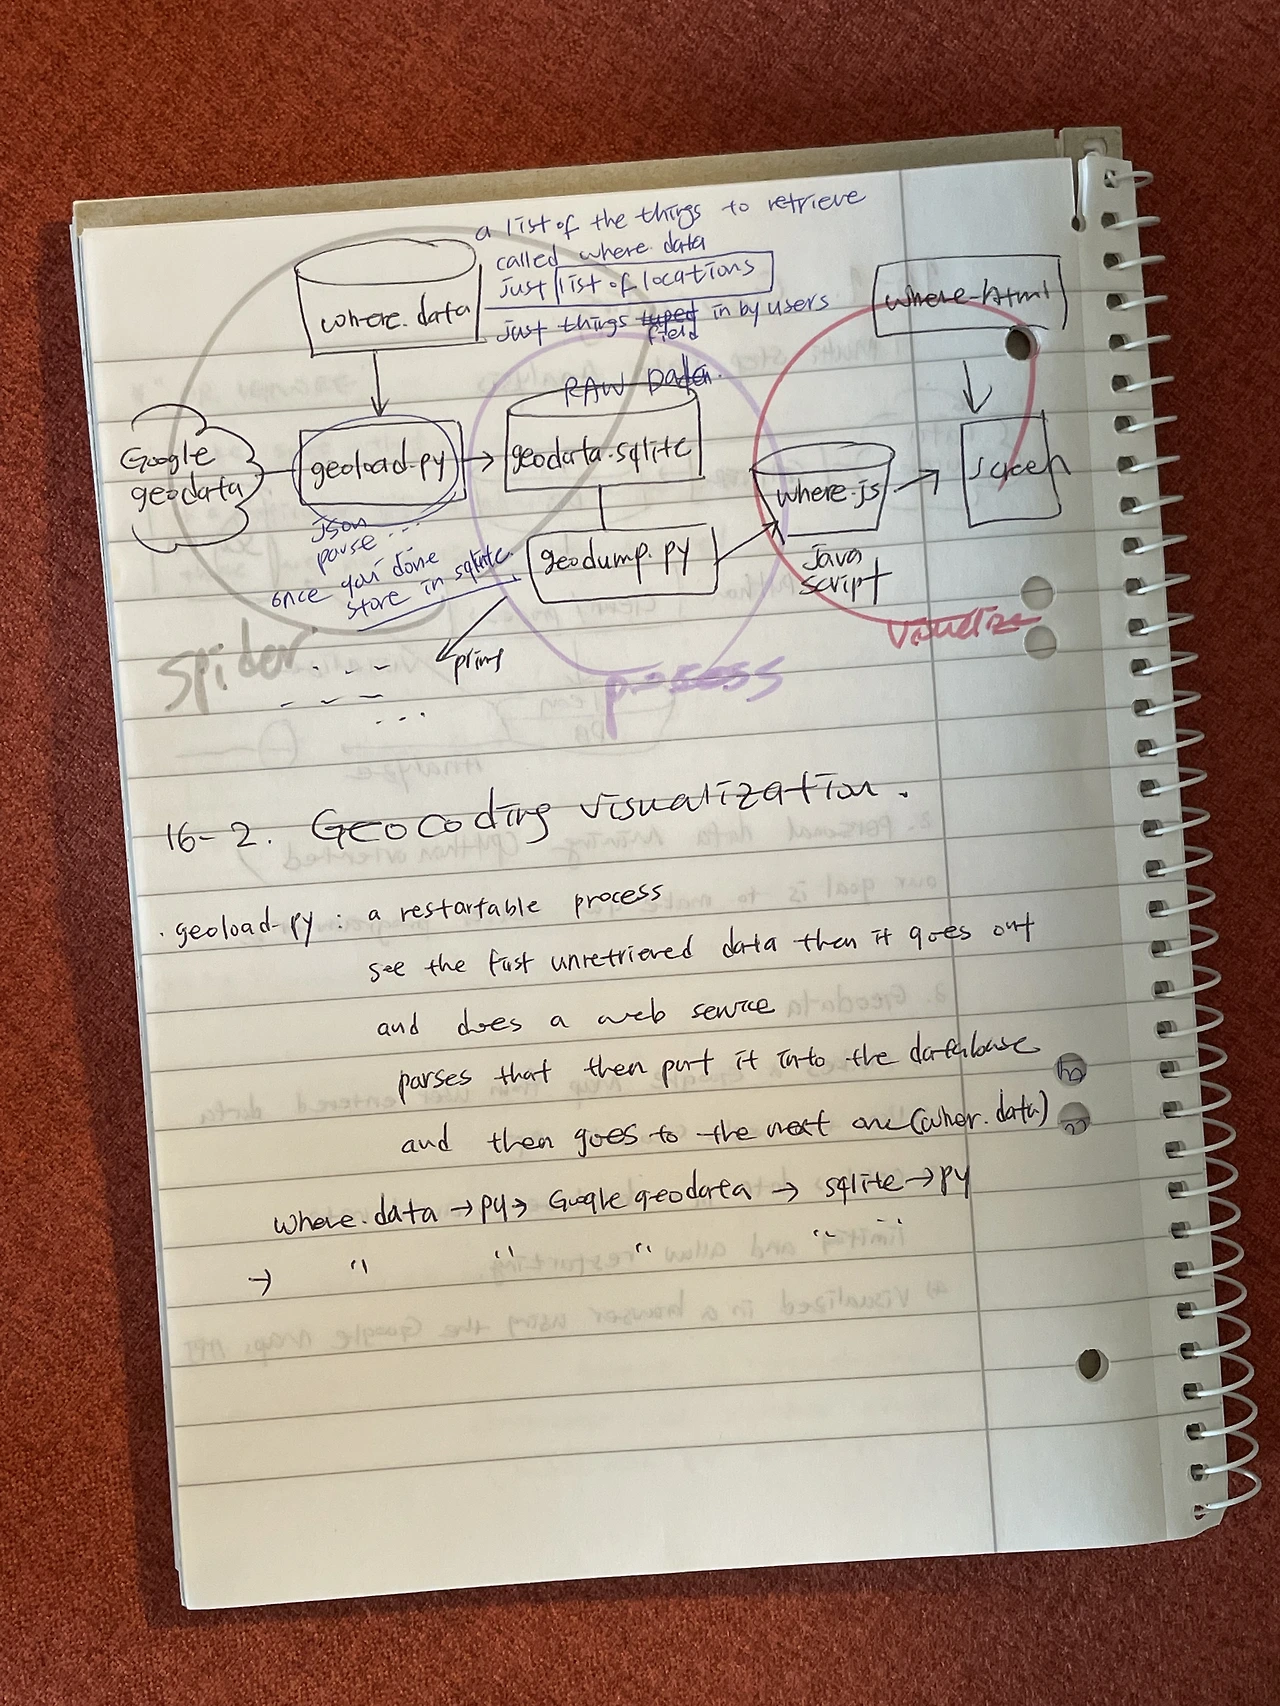 a list of the things to retrieve
called where.data
just list of locations
just things typed in by users
field
where.data
where.html
RAW Data.
Google
geodata
geoload.py
geodata.sqlite
where.js
screen
json
parse ...
once you done
store in sqlite.
geodump.py
java
script
visualize
spider
print
process
16-2. Geocoding visualization.
· geoload.py : a restartable process
see the first unretrieved data then it goes out
and does a web service
parses that then put it into the database
and then goes to the next one (wher.data)
where.data → py → Google geodata → sqlite → py
→ " " " " "